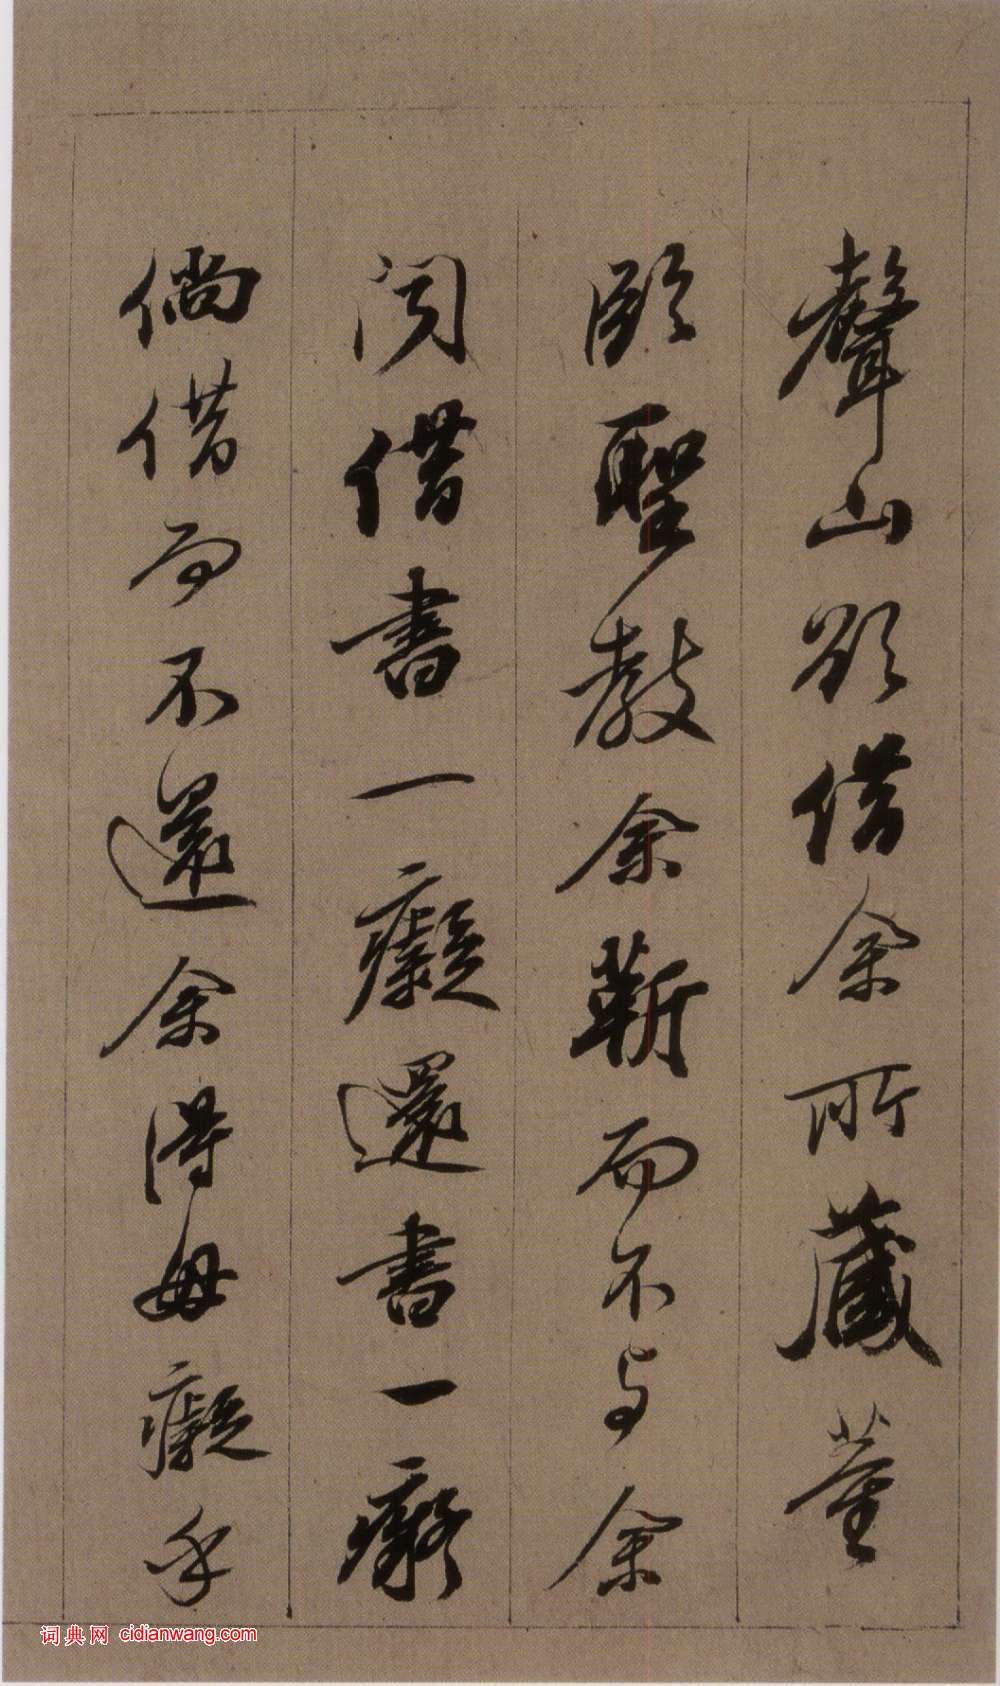 聲山欲借余所藏董
臨聖教余蘄而不与余
闵借書一癡還書一癡
倘借而不還余得毋癡乎
词典网 cidianwang.com